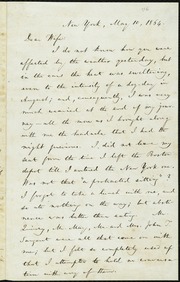 New York, May 10, 1854.
Dear Wife:
I do not know how you were
affected by the weather yesterday, but
in the cars the heat was sweltering,
even to the intensity of a dog-day in
August; and, consequently, I was very
much wearied at the end of my jour-
ney—all the more as I brought along
with me the headache I had had the
night previous. I did not leave my
seat from the time I left the Boston
depot till I entered the New York one.
Was not that a protracted sitting? I
had forgot to take a lunch with me, and
so ate nothing on the way; but absti-
nence was better than eating. Mr.
Quincy, Mr. May, Mr. and Mrs. John
Sargent were all that came on with
me; but I felt so completely used up
that I attempted to hold no conversa-
tion with any of them.